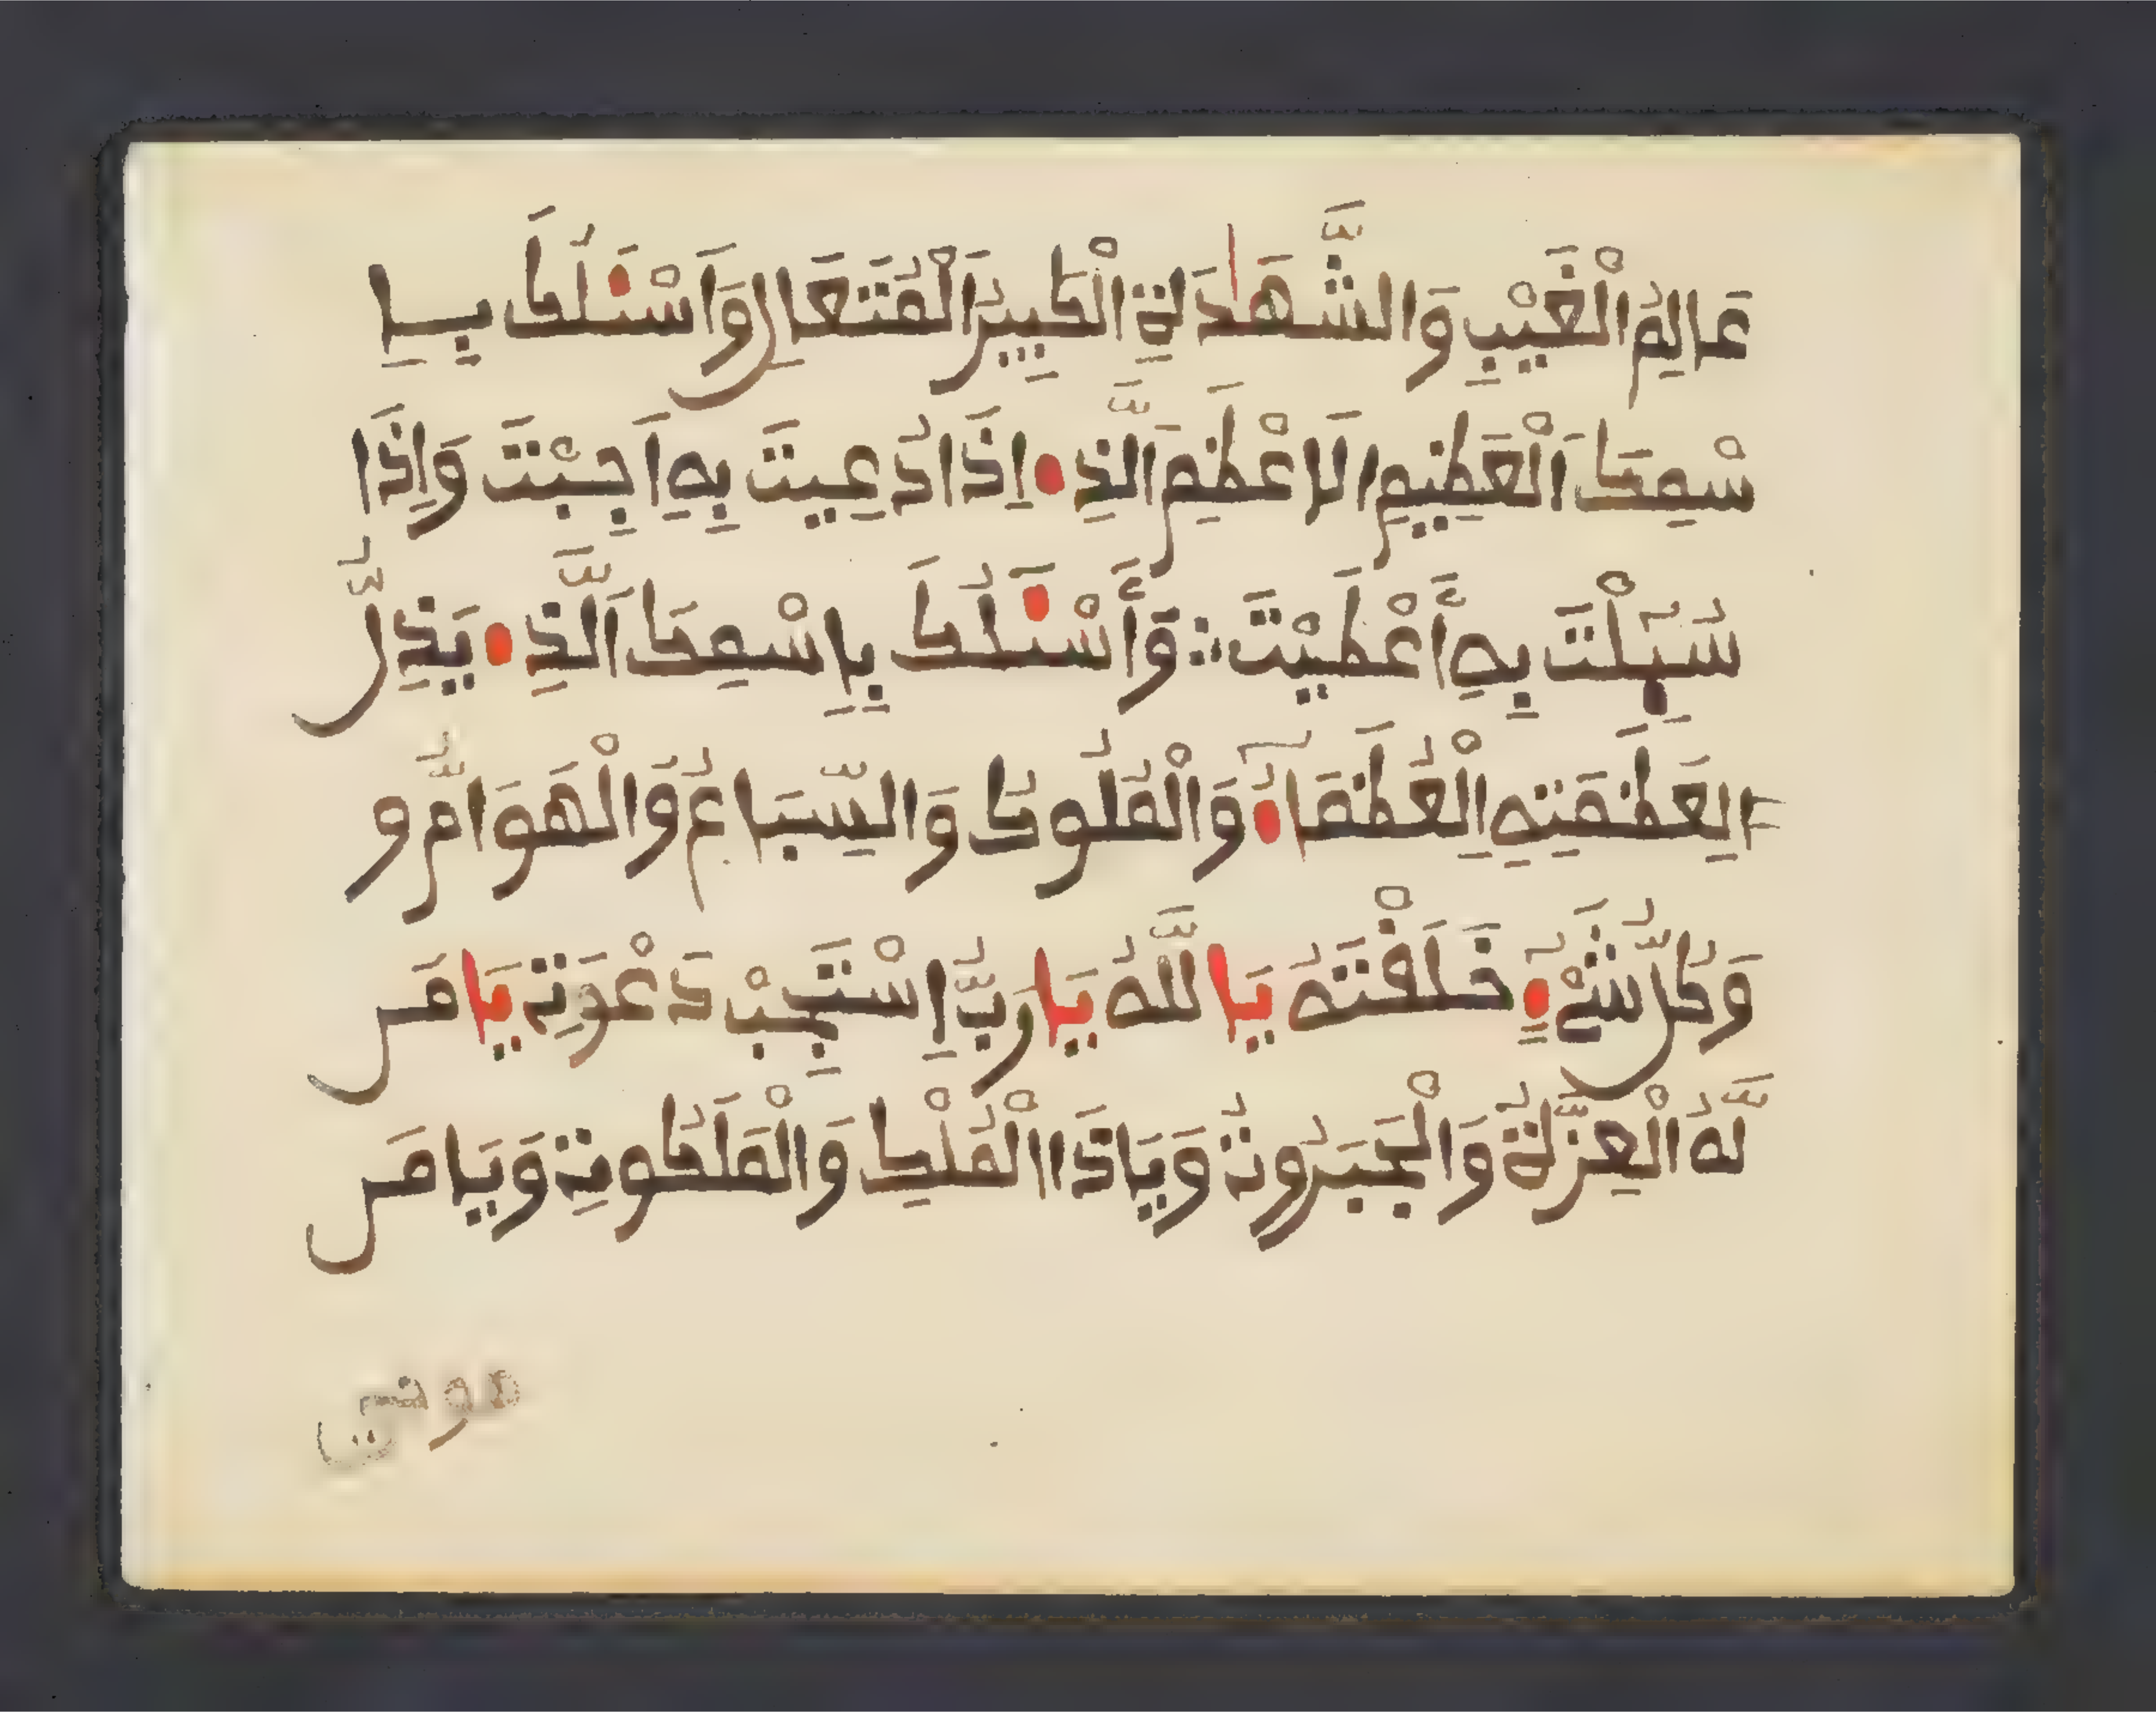 عَالِمُ الْغَيْبِ وَالشَّهَٰدَةِ الْكَبِيرَ الْمُتَعَالِ وَاَسْـَٔلُكَ بِـاِ
سْمِكَ اَلْعَظِيمِ اِلَاعْظَمِ اَلَّذِے اِذَا دُعِيتَ بِهِ اَجِبْتَ وَاِذَا
سُئِلْتَ بِهِ أَعْطَيْتَ ؞ وَأَسْـَٔلُكَ بِاِسْمِكَ اَلَّذِے يَذِلُّ
لِعَظَمَتِهِ اِلْعُظَمَاءُ وَالْمُلُوكُ وَالسِّبَاعُ وَالْهَوَامُّ وَ
وَكُلُّ شَےْءٍ خَلَقْتَهُ يَا اللَّهُ يَا رَبُّ اِسْتَجِبْ دَعْوَتِے يَا مَن
لَّهُ الْعِزَّةُ وَالْجَبَرُوتُ وَيَا ذَا الْمُلْكِ وَالْمَلَكُوتِ وَيَا مَن